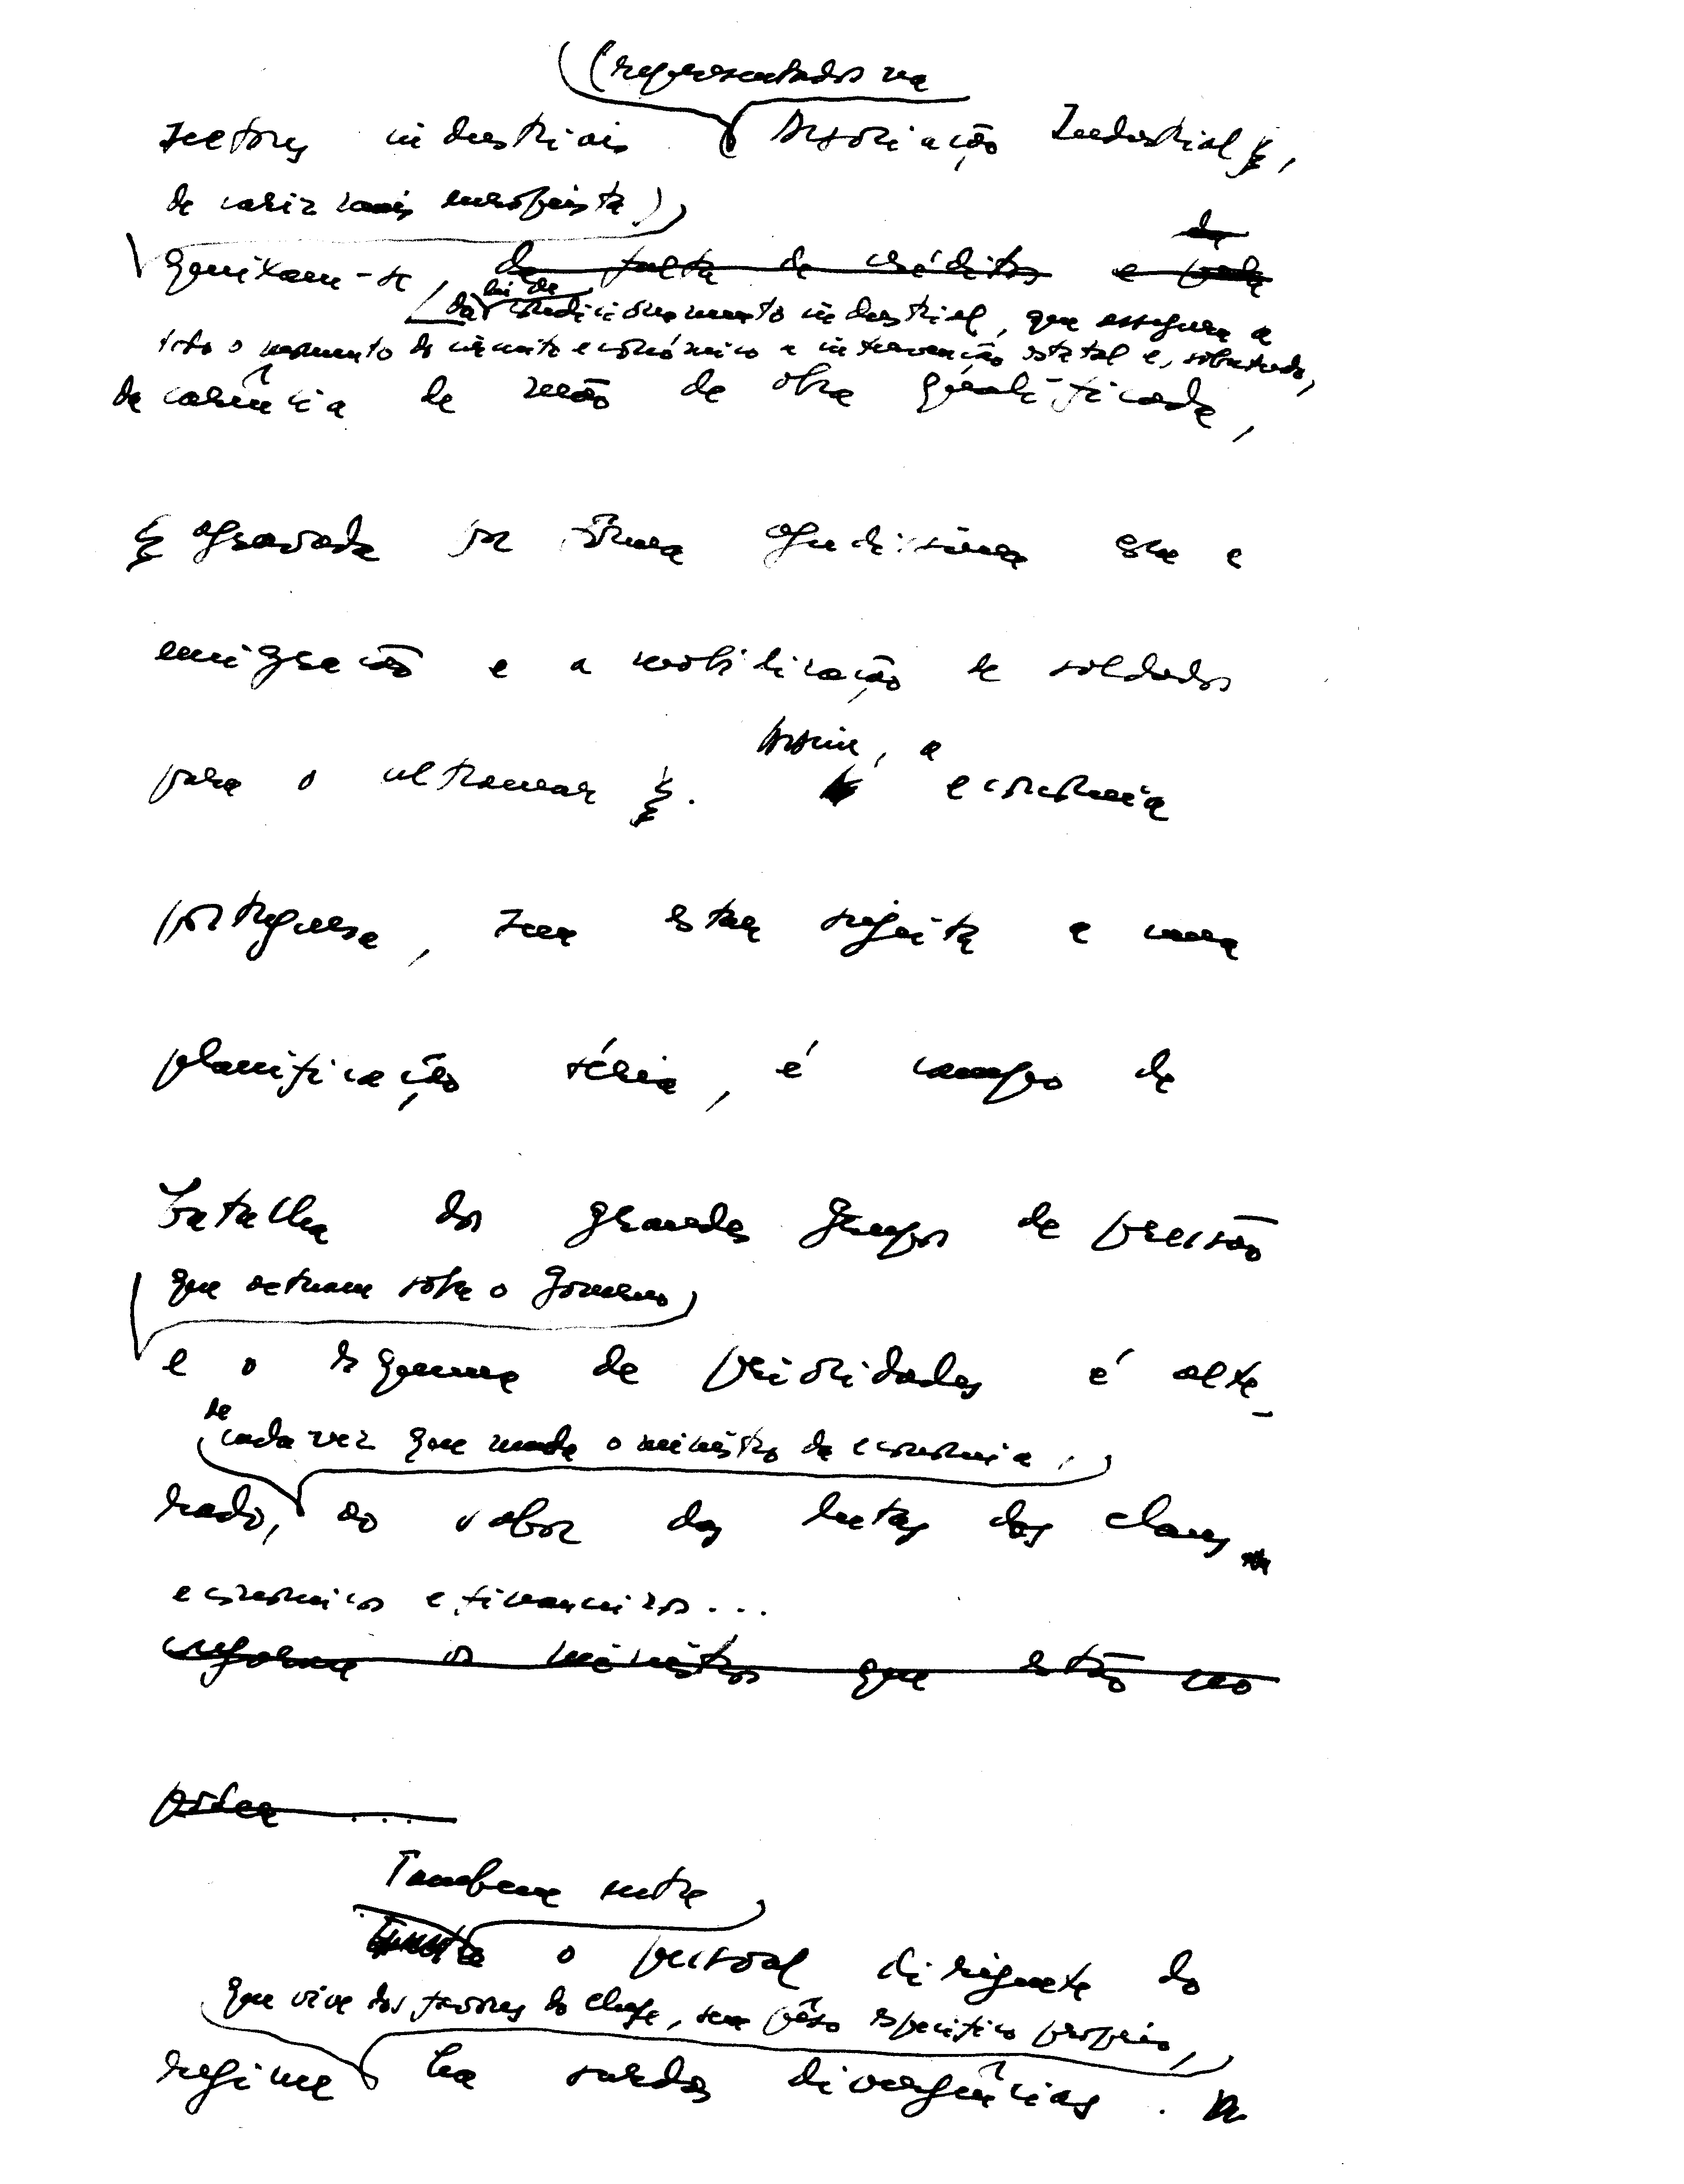 (representados na
sectores industriais Associação Industrial,
de cariz mais europeista)
queixam-se, de falta de créditos e pela
da
lei de
da condicionamento industrial, que assegura a
todo o momento do circuito económico a intervenção estatal e, sobretudo,
da carência de mão de obra qualificada,
agravada por forma agudissima com a
emigração e a mobilização de soldados
para o ultramar.
Assim, a
economia
portuguesa, sem estar sujeita a uma
planificação séria, é campo de
batalha dos grandes grupos de pressão
que actuam sôbre o Governo,
e o esquema de prioridades é alte-
se
cada vez que muda o ministro da economia,
rado, ao sabor das lutas dos clans
economicos e financeiros...
os ministros que estão no
poder ...
Tambem entre
o pessoal dirigente do
que vive dos favores do chefe, sem pêso especifico proprio,
regime ha surdas divergências.